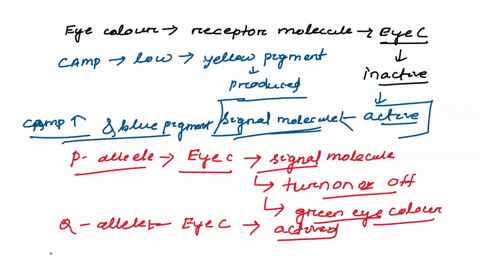 Eye colour → receptor molecule → EyeC
CAMP → low → yellow pigment
↓
inactive
↓
produced
↓
CAMP ↑ & blue pigment signal molecule ← active
P- allele → Eyec → signal molecule
↳ turn on or off
↳ green eye colour
Q- allele ← Eyec → actived